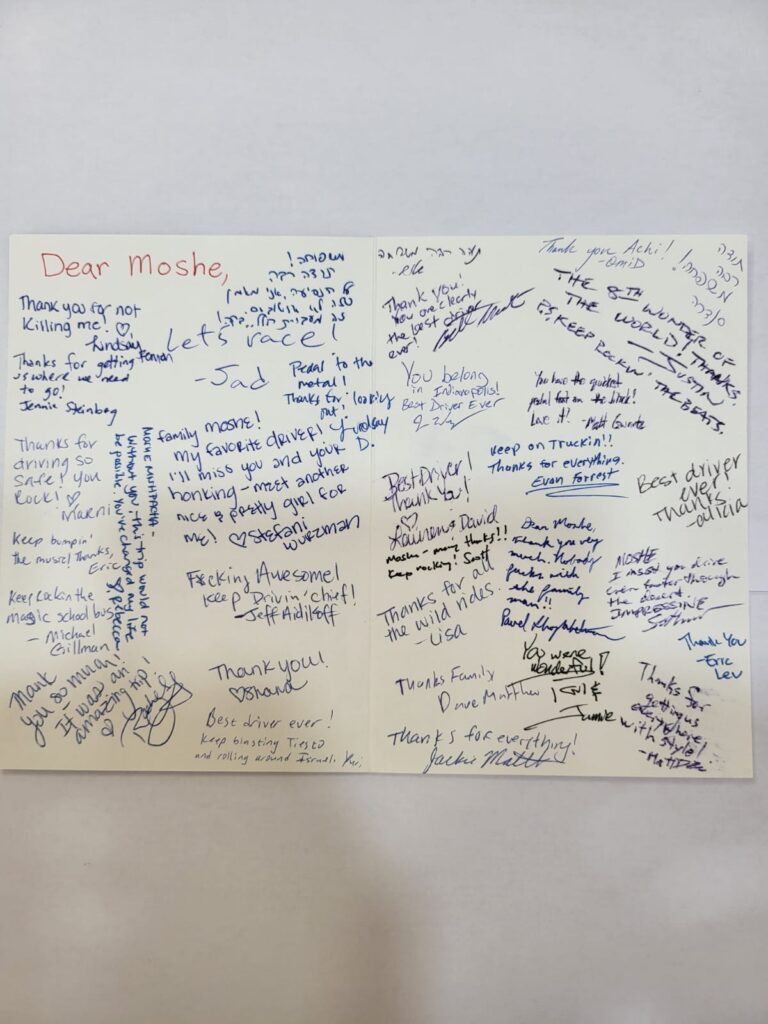 Dear Moshe,
Thank you for not
Killing me! ♡,
Lindsay
Thanks for getting
us where we need
to go!
Jennie Steinberg
Thanks for
driving so
safe! You
Rock! ♡
Marni
Keep bumpin'
the music! Thanks,
Eric
Keep Rockin the
magic school bus
- Michael
Gillman
Thank
you so much!
It was an
amazing trip!
♡
Without you - this trip would not
be possible. You've changed my life
♡, Rebecca
משפחה!
תודה רבה
Let's race!
- Jad
Pedal to the
metal!
Thanks for looking
out!
Lindsay
D.
family moshe!
my favorite driver!
I'll miss you and your
honking - meet another
nice & pretty girl for
me! ♡ Stefani
Wurzman
F*cking Awesome!
Keep Drivin' chief!
- Jeff Aidikoff
Thank you!
♡ Shana
Best driver ever!
Keep blasting Tiesto
and rolling around Israel. Yuri
תודה רבה
Thank you Achi!
- Omid
תודה
רבה
משפחה!
Thank you!
You are clearly
the best driver
ever!
THE 8TH WONDER OF
THE WORLD! THANKS.
- JUSTIN
P.S. KEEP ROCKIN' THE BEATS.
You belong
in Indianapolis!
Best Driver Ever
You have the quickest
pedal foot on the block!
Love it! - Matt
Keep on Truckin!!
Thanks for everything.
Evan Forrest
Best driver
ever!
Thanks!
- alicia
Best Driver!
Thank you!
♡
Lauren & David
Moshe - many thanks!!
Keep rocking! Scott
Dear Moshe,
thank you very
much. Nobody
parks with
the family
man!!
Pavel
MOSHE
I insist you drive
even faster through
the desert.
IMPRESSIVE
Thanks for all
the wild rides.
- Lisa
Thank You
- Eric
Lev
You were
wonderful!
Thanks Family
Dave Matthew
Thanks for
getting us
everywhere
with style!
- Matt
Thanks for everything!
Jackie